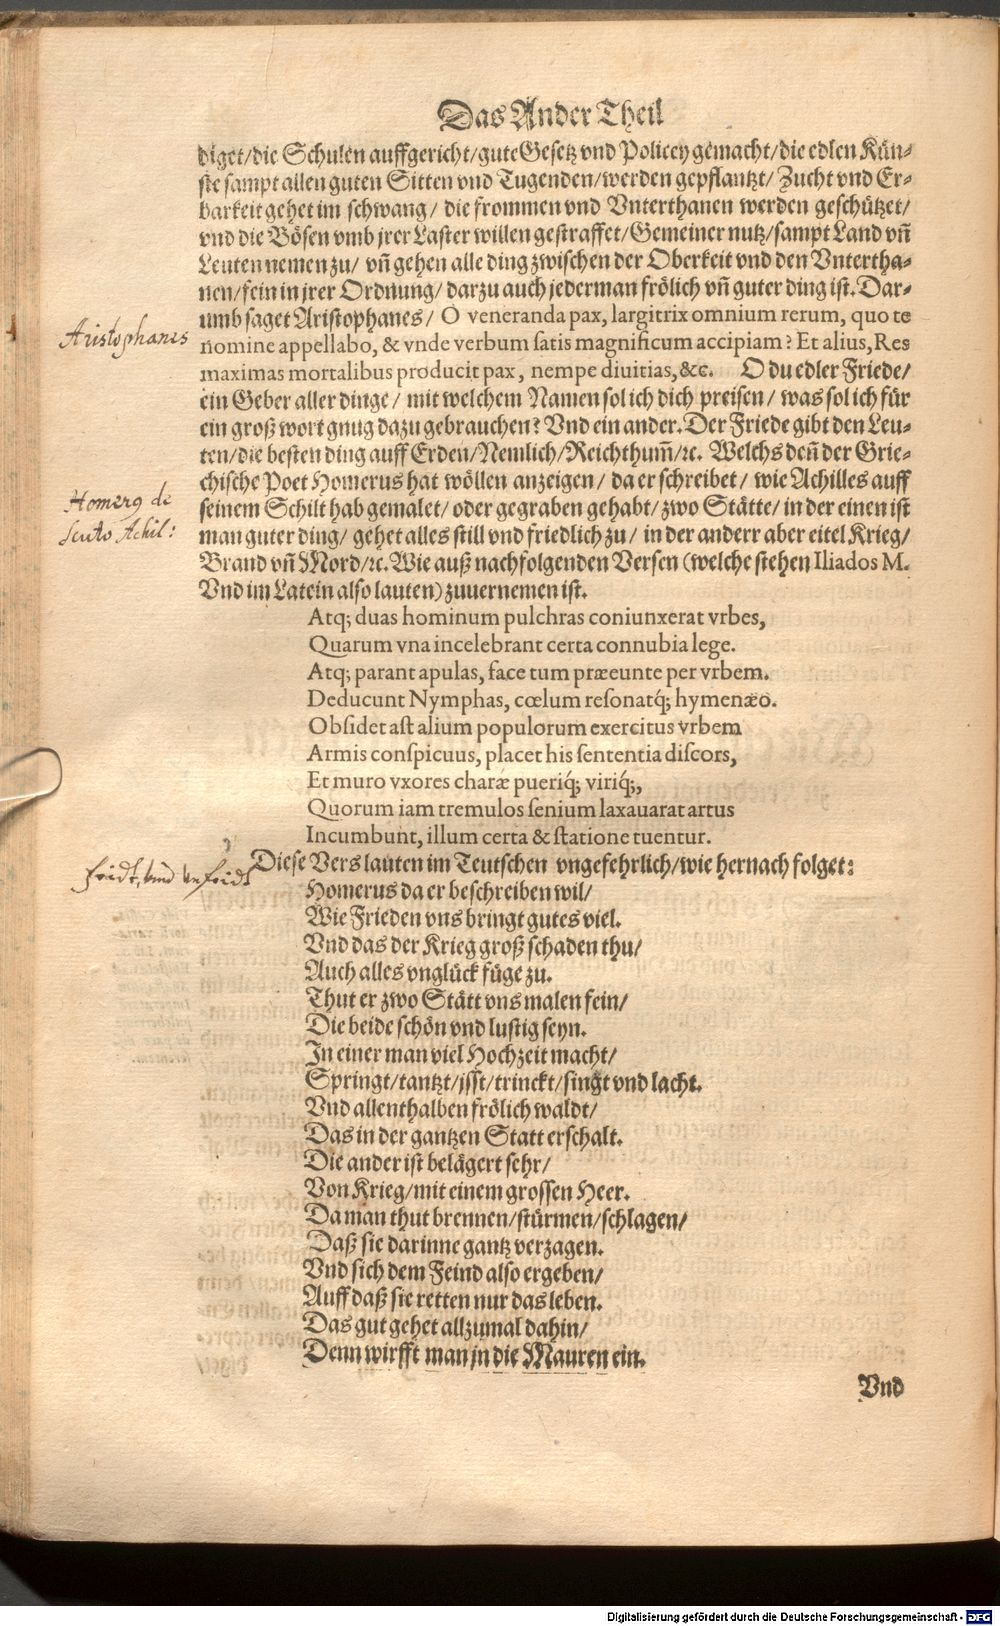 Das Ander Theil
diget/die Schulen auffgericht/gute Gesetz vnd Policey gemacht/die edlen Kün-
ste sampt allen guten Sitten vnd Tugenden/werden gepflantzt/ Zucht vnd Er-
barkeit gehet im schwang/ die frommen vnd Vnterthanen werden geschützet/
vnd die Bösen vmb jrer Laster willen gestraffet/Gemeiner nutz/sampt Land vn̄
Leuten nemen zu/ vn̄ gehen alle ding zwischen der Oberkeit vnd den Vntertha-
nen/fein in jrer Ordnung/ darzu auch jederman frölich vn̄ guter ding ist. Dar-
umb saget Aristophanes/ O veneranda pax, largitrix omnium rerum, quo te
Aristophanes
nomine appellabo, & vnde verbum satis magnificum accipiam? Et alius, Res
maximas mortalibus producit pax, nempe diuitias, &c. O du edler Friede/
ein Geber aller dinge/ mit welchem Namen sol ich dich preisen/ was sol ich für
ein groß wort gnug dazu gebrauchen? Vnd ein ander. Der Friede gibt den Leu-
ten/die besten ding auff Erden/Nemlich/Reichthum̄/ꝛc. Welchs den̄ der Grie-
chische Poet Homerus hat wöllen anzeigen/ da er schreibet/ wie Achilles auff
Homerꝰ de
seinem Schilt hab gemalet/ oder gegraben gehabt/ zwo Stätte/ in der einen ist
Scuto Achil:
man guter ding/ gehet alles still vnd friedlich zu/ in der anderr aber eitel Krieg/
Brand vn̄ Mord/ꝛc. Wie auß nachfolgenden Versen (welche stehen Iliados M.
Vnd im Latein also lauten) zuuernemen ist.
Atq; duas hominum pulchras coniunxerat vrbes,
Quarum vna incelebrant certa connubia lege.
Atq; parant apulas, face tum præeunte per vrbem.
Deducunt Nymphas, cœlum resonatq́; hymenæo.
Obsidet ast alium populorum exercitus vrbem
Armis conspicuus, placet his sententia discors,
Et muro vxores charæ pueriq́; viriq́;,
Quorum iam tremulos senium laxauarat artus
Incumbunt, illum certa & statione tuentur.
Diese Vers lauten im Teutschen vngefehrlich/wie hernach folget:
fridt, vnd vnfridt
Homerus da er beschreiben wil/
Wie Frieden vns bringt gutes viel.
Vnd das der Krieg groß schaden thu/
Auch alles vnglück füge zu.
Thut er zwo Stätt vns malen fein/
Die beide schön vnd lustig seyn.
In einer man viel Hochzeit macht/
Springt/tantzt/jsst/trinckt/singt vnd lacht.
Vnd allenthalben frölich waldt/
Das in der gantzen Statt erschalt.
Die ander ist belägert sehr/
Von Krieg/mit einem grossen Heer.
Da man thut brennen/stürmen/schlagen/
Daß sie darinne gantz verzagen.
Vnd sich dem Feind also ergeben/
Auff daß sie retten nur das leben.
Das gut gehet allzumal dahin/
Denn wirfft man jn die Mauren ein.
Vnd
Digitalisierung gefördert durch die Deutsche Forschungsgemeinschaft - DFG